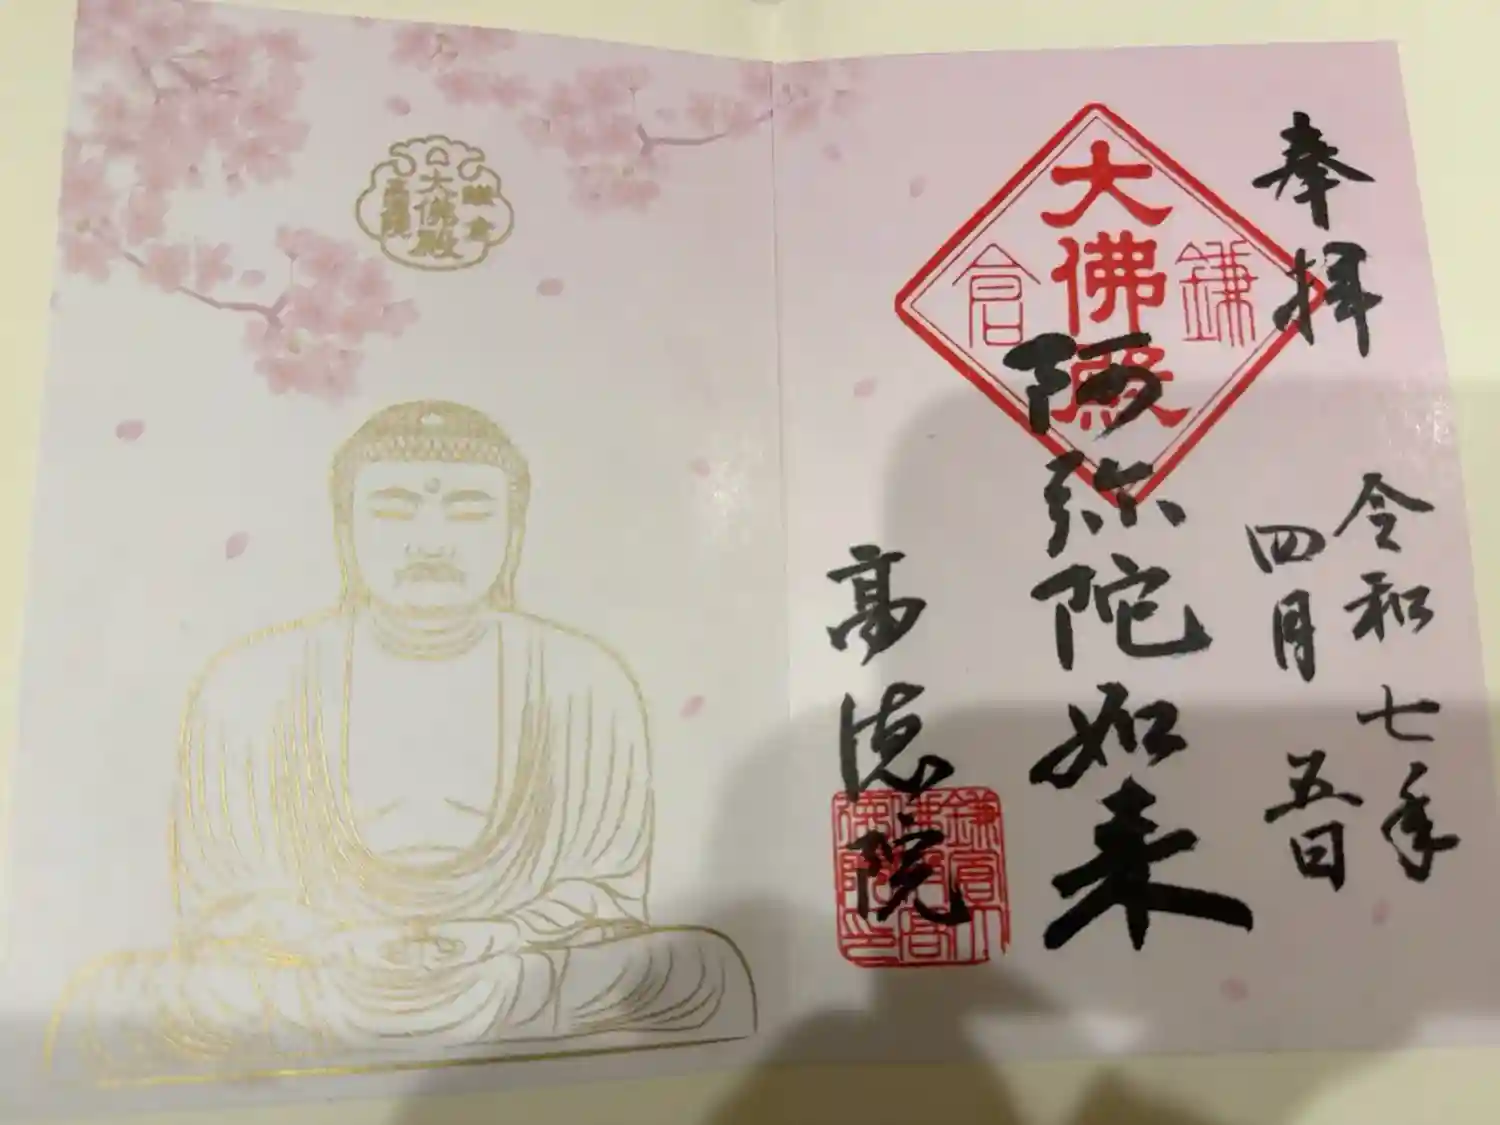 奉拝
令和七年
四月五日
鎌倉
大佛殿
阿弥陀如来
高徳院
鎌倉
大佛殿
高徳院